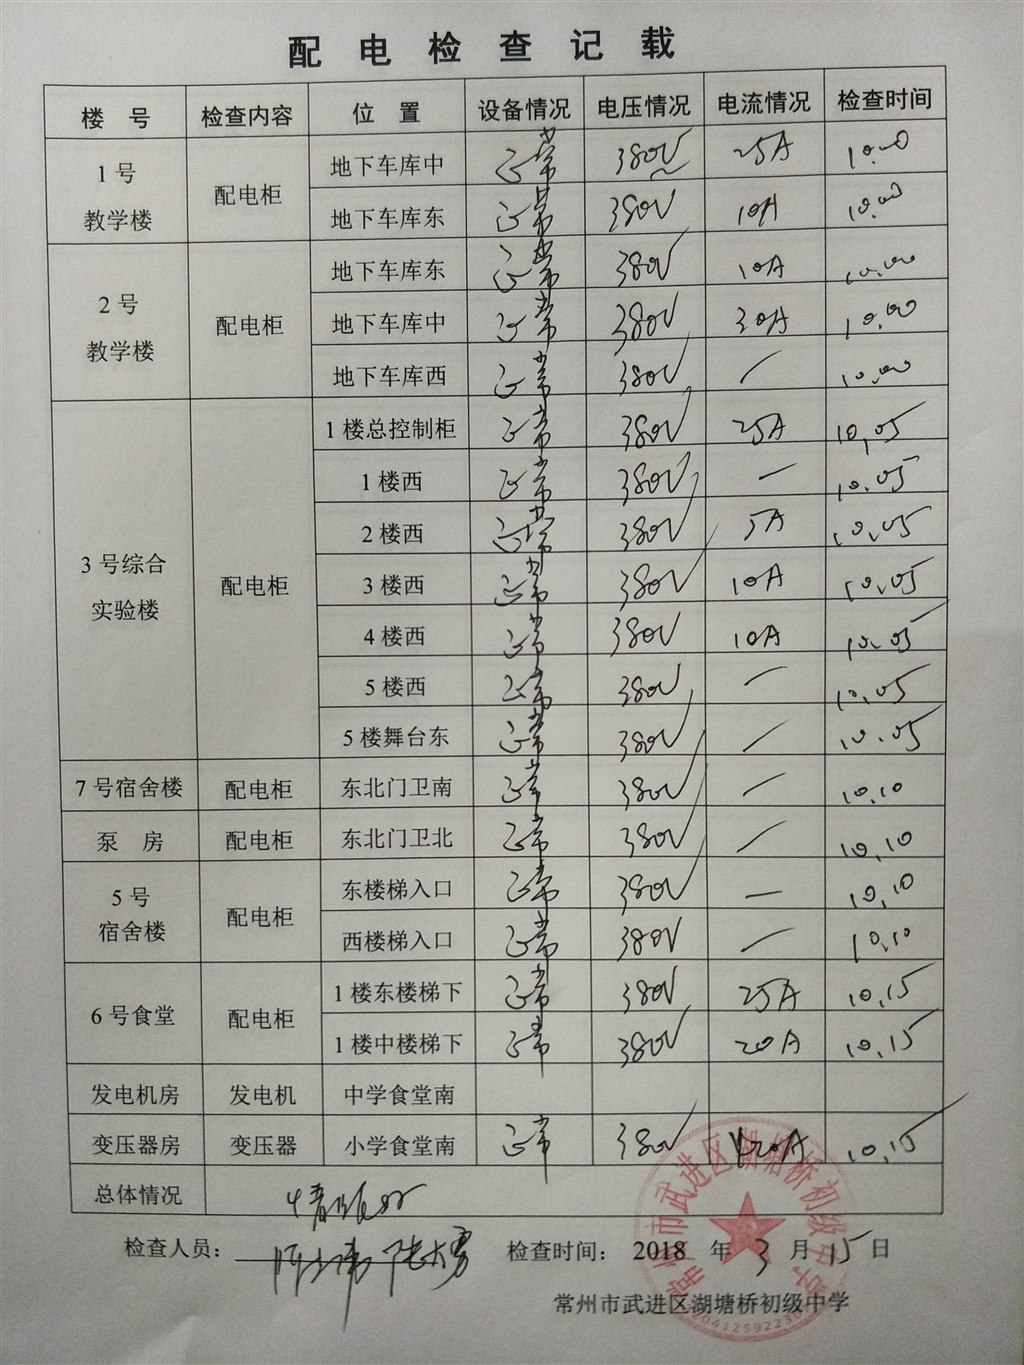 配 电 检 查 记 载
楼 号 检查内容 位 置 设备情况 电压情况 电流情况 检查时间
1 号 教学楼 配电柜 地下车库中 正常 380V 25A 10.00
地下车库东 正常 380V 10A 10.00
2 号 教学楼 配电柜 地下车库东 正常 380V 10A 10.00
地下车库中 正常 380V 30A 10.00
地下车库西 正常 380V / 10.00
3 号综合 实验楼 配电柜 1 楼总控制柜 正常 380V 25A 10.05
1 楼西 正常 380V / 10.05
2 楼西 正常 380V 5A 10.05
3 楼西 正常 380V 10A 10.05
4 楼西 正常 380V 10A 10.05
5 楼西 正常 380V / 10.05
5 楼舞台东 正常 380V / 10.05
7 号宿舍楼 配电柜 东北门卫南 正常 380V / 10.10
泵 房 配电柜 东北门卫北 正常 380V / 10.10
5 号 宿舍楼 配电柜 东楼梯入口 正常 380V — 10.10
西楼梯入口 正常 380V / 10.10
6 号食堂 配电柜 1 楼东楼梯下 正常 380V 25A 10.15
1 楼中楼梯下 正常 380V 20A 10.15
发电机房 发电机 中学食堂南
变压器房 变压器 小学食堂南 正常 380V 10.15
总体情况 情况良好
检查人员： 检查时间： 2018 年 3 月 15 日
常州市武进区湖塘桥初级中学
常州市武进区湖塘桥初级中学